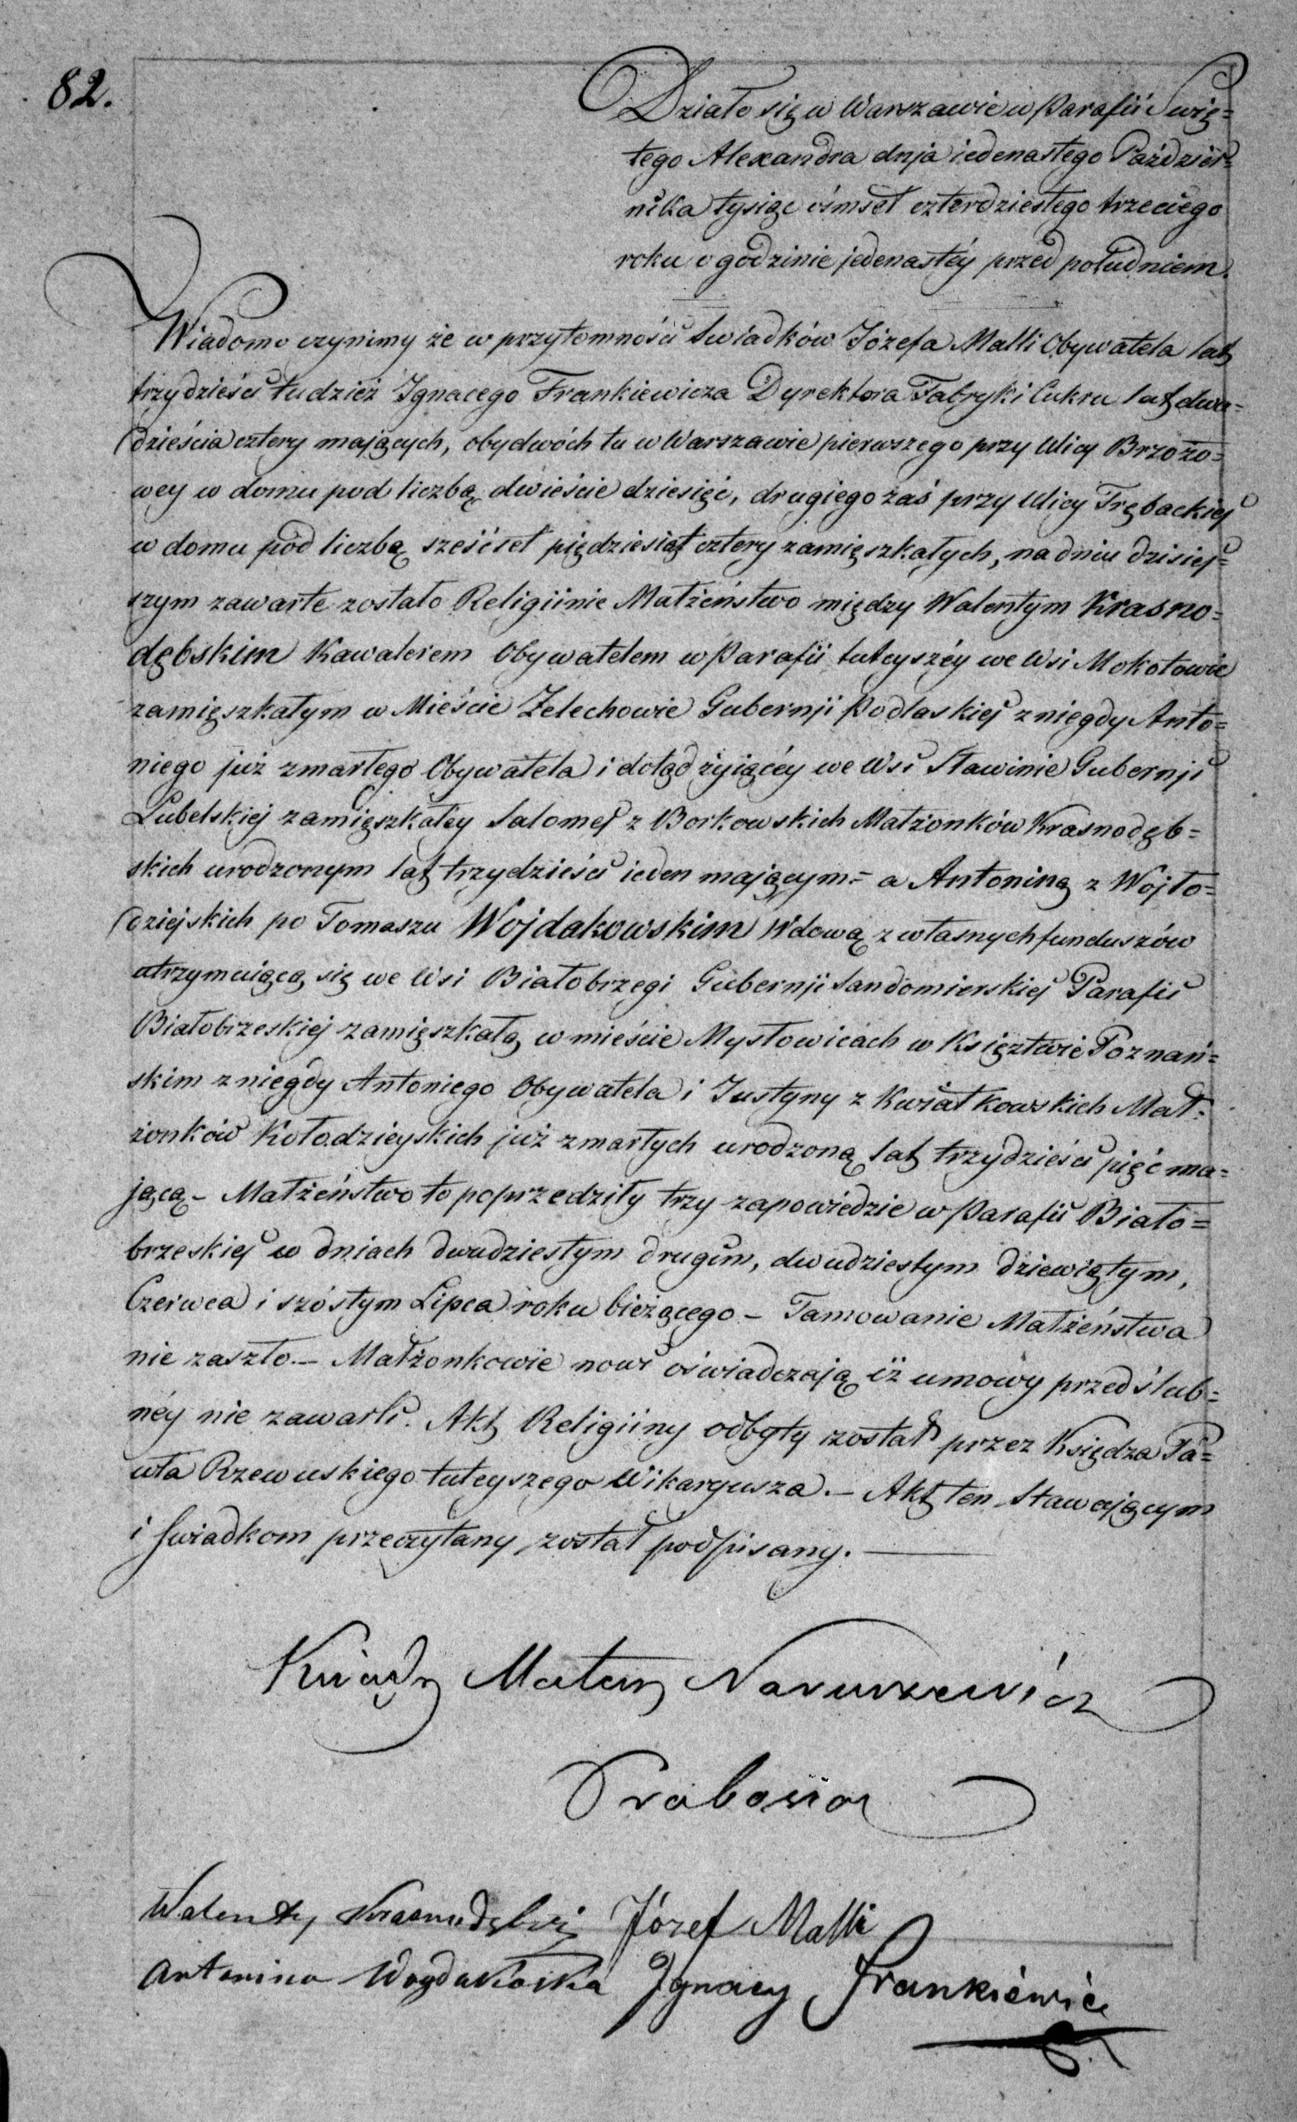 82.
Działo się w Warszawie w Parafii Swię=
tego Alexandra dnia iedenastego Paździer=
nika tysiąc ośmset czterdziestego trzeciego
roku o godzinie jedenastéy przed południem.
Wiadomo czynimy że w przytomności Swiadków Józefa Malli Obywatela lat
trzydzieści tudzież Ignacego Frankiewicza Dyrektora Fabryki Cukru lat dwa=
dzieścia cztery mających, obydwóch tu w Warszawie pierwszego przy Ulicy Brzozo=
wey w domu pod liczbą dwieście dziesięć, drugiego zaś przy Ulicy Trębackiej
w domu pod liczbą sześćset pięćdziesiąt cztery zamięszkałych, na dniu dzisiej=
szym zawarte zostało Religiinie Małżeństwo między Walentym Krasno=
dębskim Kawalerem Obywatelem w Parafii tuteyszéy we Wsi Mokotowie
zamięszkałym w Mieście Zelechowie Gubernji Podlaskiej z niegdy Anto=
niego już zmarłego Obywatela i dotąd żyiącéy we Wsi Sławinie Gubernji
Lubelskiej zamięszkałey Salomei z Borkowskich Małżonków Krasnodęb=
skich urodzonym lat trzydzieści ieden mającym = a Antoniną z Wojto=
dziejskich po Tomaszu Wojdakowskim Wdową z własnych funduszów
utrzymuiącą się we Wsi Białobrzegi Gubernji Sandomierskiej Parafii
Białobrzeskiej zamięszkałą w mieście Mysłowicach w Księztwie Poznań=
skim z niegdy Antoniego Obywatela i Justyny z Kwiatkowskich Mał=
żonków Kołodzieyskich już zmarłych urodzoną lat trzydzieści pięć ma=
jącą – Małżeństwo to poprzedziły trzy zapowiedzie w Parafii Biało=
brzeskiej w dniach dwudziestym drugim, dwudziestym dziewiątym,
Czerwca i szóstym Lipca roku bieżącego – Tamowanie Małżeństwa
nie zaszło. – Małżonkowie nowi oświadczają iż umowy przedślub=
néy nie zawarli. Akt Religiiny odbyty został przez Księdza Pa=
wła Rzewuskiego tuteyszego Wikaryusza. – Akt ten Stawającym
i Swiadkom przeczytany, został podpisany. –
Ksiądz Mateusz Naruszewicz
Proboszcz
Walenty Krasnodębski Józef Malli
Antonina Woydakoska Ignacy Frankiewicz